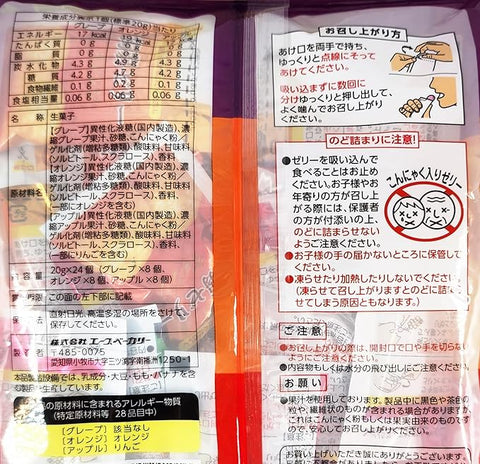 栄養成分表示1個(標準20g)当たり
グレープ オレンジ
エネルギー 17 kcal 19 kcal
たんぱく質 0 g 0 g
脂 0 g
炭水化物 4.3 g 4.8 g
糖質 4.2 g 4.7 g 4.2 g
食物繊維 0.1 g 0.1 g 0.2 g
食塩相当量 0.06 g 0.06 g 0.06 g
名称 生菓子
原材料名
【グレープ】異性化液糖(国内製造)、濃
縮グレープ果汁、砂糖、こんにゃく粉/
ゲル化剤(増粘多糖類)、酸味料、甘味料
(ソルビトール、スクラロース)、香料
【オレンジ】異性化液糖(国内製造)、濃
縮オレンジ果汁、砂糖、こんにゃく粉/
ゲル化剤(増粘多糖類)、酸味料、甘味料
(ソルビトール、スクラロース)、香料、
(一部にオレンジを含む)
【アップル】異性化液糖(国内製造)、濃
縮アップル果汁、砂糖、こんにゃく粉/
ゲル化剤(増粘多糖類)、酸味料、甘味料
(ソルビトール、スクラロース)、香料、
(一部にりんごを含む)
内容量 20g×24個(グレープ×8個、
オレンジ×8個、アップル×8個)
この面の左下部に記載
直射日光、高温多湿の場所をさけて
保存してください。
株式会社エースベーカリー
〒485-0075
愛知県小牧市大字三ツ渕字南播州1250-1
本品製造設備では、乳成分・大豆・もも・バナナを含む
製品も生産しています。
の原材料に含まれるアレルギー物質
(特定原材料等 28品目中)
(グレープ) 該当なし
(オレンジ) オレンジ
(アップル) りんご
お召し上がり方
あけ口を両手で持ち、
ゆっくりと点線にそって
あけてください。
吸い込まずに数回に
分けゆっくりと押し出して、
よく噛んでお召し上がり
ください。
のど詰まりに注意!
●ゼリーを吸い込んで
食べることはお止め
ください。お子様やお
年寄りの方が召し上
がる際には、保護者
の方が付添いの上、
のどに詰まらせない
ようご注意ください。
こんにゃく入りゼリー
●お子様の手の届かないところに保管して
ください。
●凍らせたり加熱したりしないでください。
(凍らせて召し上がりますとのどに詰ま
せてしまう原因ともなります。)
ご注意
●お召し上がりの際は、開封口で口や手を切らない
ようにご注意ください。
●内容物もしくは水分の飛び出しにご注意ください。
お願い
●果汁を使用しております。製品中に黒色や茶色の
粒や、繊維状のものが含まれる場合がありますが、
これはこんにゃく粉もしくは果実由来のものです
ので、安心してお召し上がりください。
お買い上げいただき誠にありがとうございます。